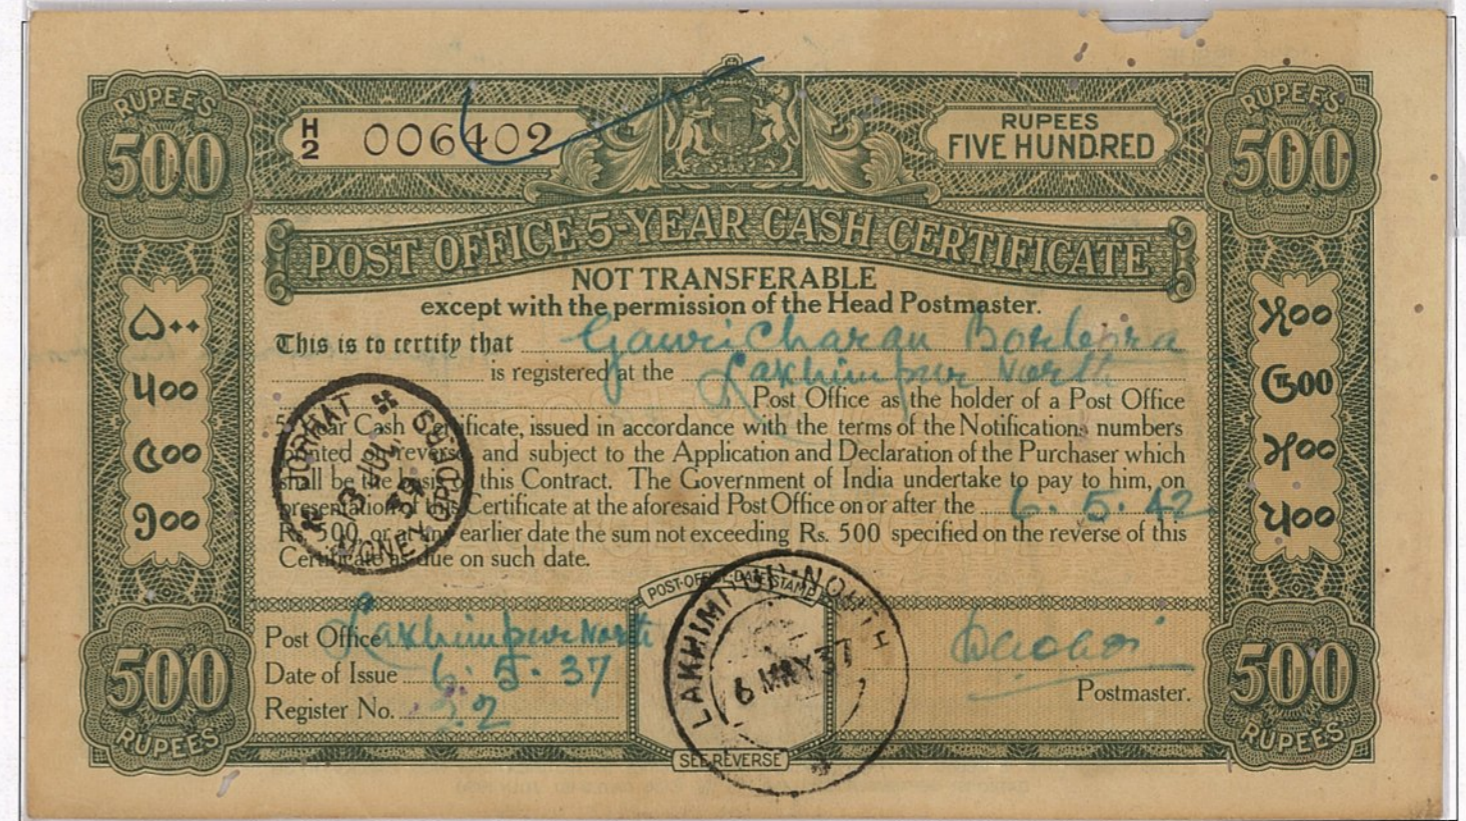 RUPEES
500
H
2
006402
RUPEES
FIVE HUNDRED
RUPEES
500
POST OFFICE 5-YEAR CASH CERTIFICATE
NOT TRANSFERABLE
except with the permission of the Head Postmaster.
This is to certify that Gauricharan Borbora
is registered at the Lakhimpur North
Post Office as the holder of a Post Office
5-Year Cash Certificate, issued in accordance with the terms of the Notifications numbers
printed on reverse and subject to the Application and Declaration of the Purchaser which
shall be the basis of this Contract. The Government of India undertake to pay to him, on
presentation of this Certificate at the aforesaid Post Office on or after the 6.5.42
Rs. 500 or at any earlier date the sum not exceeding Rs. 500 specified on the reverse of this
Certificate as due on such date.
۵۰۰
५००
৫০০
၅၀၀
JORHAT
3 JUL
39
MONEY ORDER
POST-OFFICE-DATE-STAMP
LAKHIMPUR-NORTH
6 MAY 37
Post Office Lakhimpur North
Date of Issue 6.5.37
Register No. 22
Postmaster.
500
RUPEES
SEE REVERSE
500
RUPEES